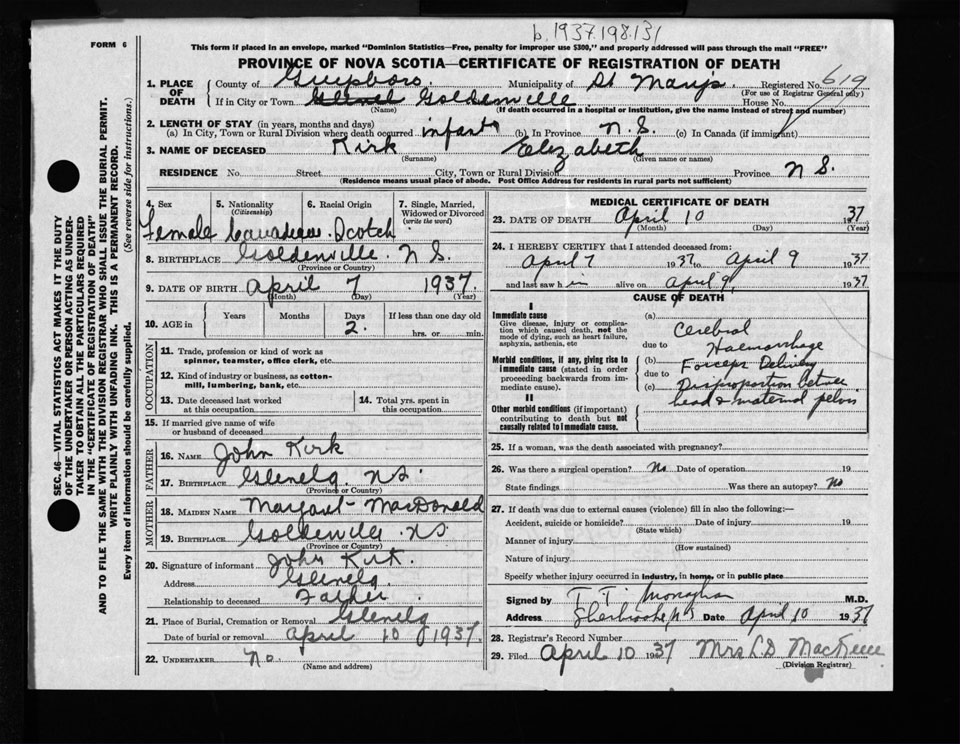 b.1937.198.131
FORM 6
This form if placed in an envelope, marked "Dominion Statistics—Free, penalty for improper use $300," and properly addressed will pass through the mail "FREE"
PROVINCE OF NOVA SCOTIA—CERTIFICATE OF REGISTRATION OF DEATH
1. PLACE OF DEATH County of Guysboro Municipality of St Marys Registered No. 619
(For use of Registrar General only)
If in City or Town Glenelg Goldenville House No.
(Name) (If death occurred in a hospital or institution, give the name instead of street and number)
2. LENGTH OF STAY (in years, months and days)
(a) In City, Town or Rural Division where death occurred infant (b) In Province N.S. (c) In Canada (if immigrant)
3. NAME OF DECEASED Kirk Elizabeth
(Surname) (Given name or names)
RESIDENCE No. Street City, Town or Rural Division Province N S.
(Residence means usual place of abode. Post Office Address for residents in rural parts not sufficient)
SEC. 46—VITAL STATISTICS ACT MAKES IT THE DUTY
OF THE UNDERTAKER OR PERSON ACTING AS UNDER-
TAKER TO OBTAIN ALL THE PARTICULARS REQUIRED
IN THE "CERTIFICATE OF REGISTRATION OF DEATH"
AND TO FILE THE SAME WITH THE DIVISION REGISTRAR WHO SHALL ISSUE THE BURIAL PERMIT.
WRITE PLAINLY WITH UNFADING INK. THIS IS A PERMANENT RECORD.
Every item of information should be carefully supplied. (See reverse side for instructions.)
4. Sex 5. Nationality (Citizenship) 6. Racial Origin 7. Single, Married, Widowed or Divorced (write the word)
Female Canadian Scotch
8. BIRTHPLACE Goldenville. N S.
(Province or Country)
9. DATE OF BIRTH April 7 1937.
(Month) (Day) (Year)
10. AGE in Years Months Days If less than one day old
2. hrs. or min.
OCCUPATION
11. Trade, profession or kind of work as spinner, teamster, office clerk, etc.
12. Kind of industry or business, as cotton-mill, lumbering, bank, etc.
13. Date deceased last worked at this occupation 14. Total yrs. spent in this occupation
15. If married give name of wife or husband of deceased
FATHER
16. NAME John Kirk
17. BIRTHPLACE Glenelg. N S.
(Province or Country)
MOTHER
18. MAIDEN NAME Margaret MacDonald
19. BIRTHPLACE Goldenville N S
(Province or Country)
20. Signature of informant John Kirk.
Address Glenelg.
Relationship to deceased Father
21. Place of Burial, Cremation or Removal Glenelg
Date of burial or removal April 10 1937.
22. UNDERTAKER No.
(Name and address)
MEDICAL CERTIFICATE OF DEATH
23. DATE OF DEATH April 10 1937
(Month) (Day) (Year)
24. I HEREBY CERTIFY that I attended deceased from:
April 7 1937 to April 9 1937
and last saw h in alive on April 9, 1937
CAUSE OF DEATH
I
Immediate cause
Give disease, injury or complication which caused death, not the mode of dying, such as heart failure, asphyxia, asthenia, etc
Morbid conditions, if any, giving rise to immediate cause (stated in order proceeding backwards from immediate cause).
II
Other morbid conditions (if important) contributing to death but not causally related to immediate cause.
(a) Cerebral
due to Haemorrhage
(b) Forceps Delivery
due to
(c) Disproportion between
head & maternal pelvis
25. If a woman, was the death associated with pregnancy?
26. Was there a surgical operation? No Date of operation 19
State findings Was there an autopsy? No
27. If death was due to external causes (violence) fill in also the following:—
Accident, suicide or homicide? Date of injury 19
(State which)
Manner of injury
(How sustained)
Nature of injury
Specify whether injury occurred in industry, in home, or in public place
Signed by T T. Monaghan M.D.
Address Sherbrooke, NS Date April 10 1937
28. Registrar's Record Number
29. Filed April 10 1937 Mrs L D
(Division Registrar)